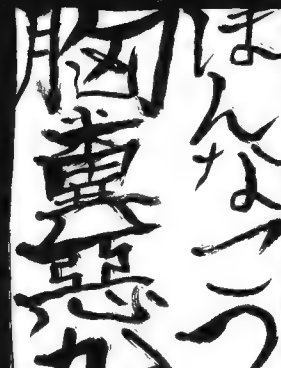 ほんなこつ
胸糞惡か